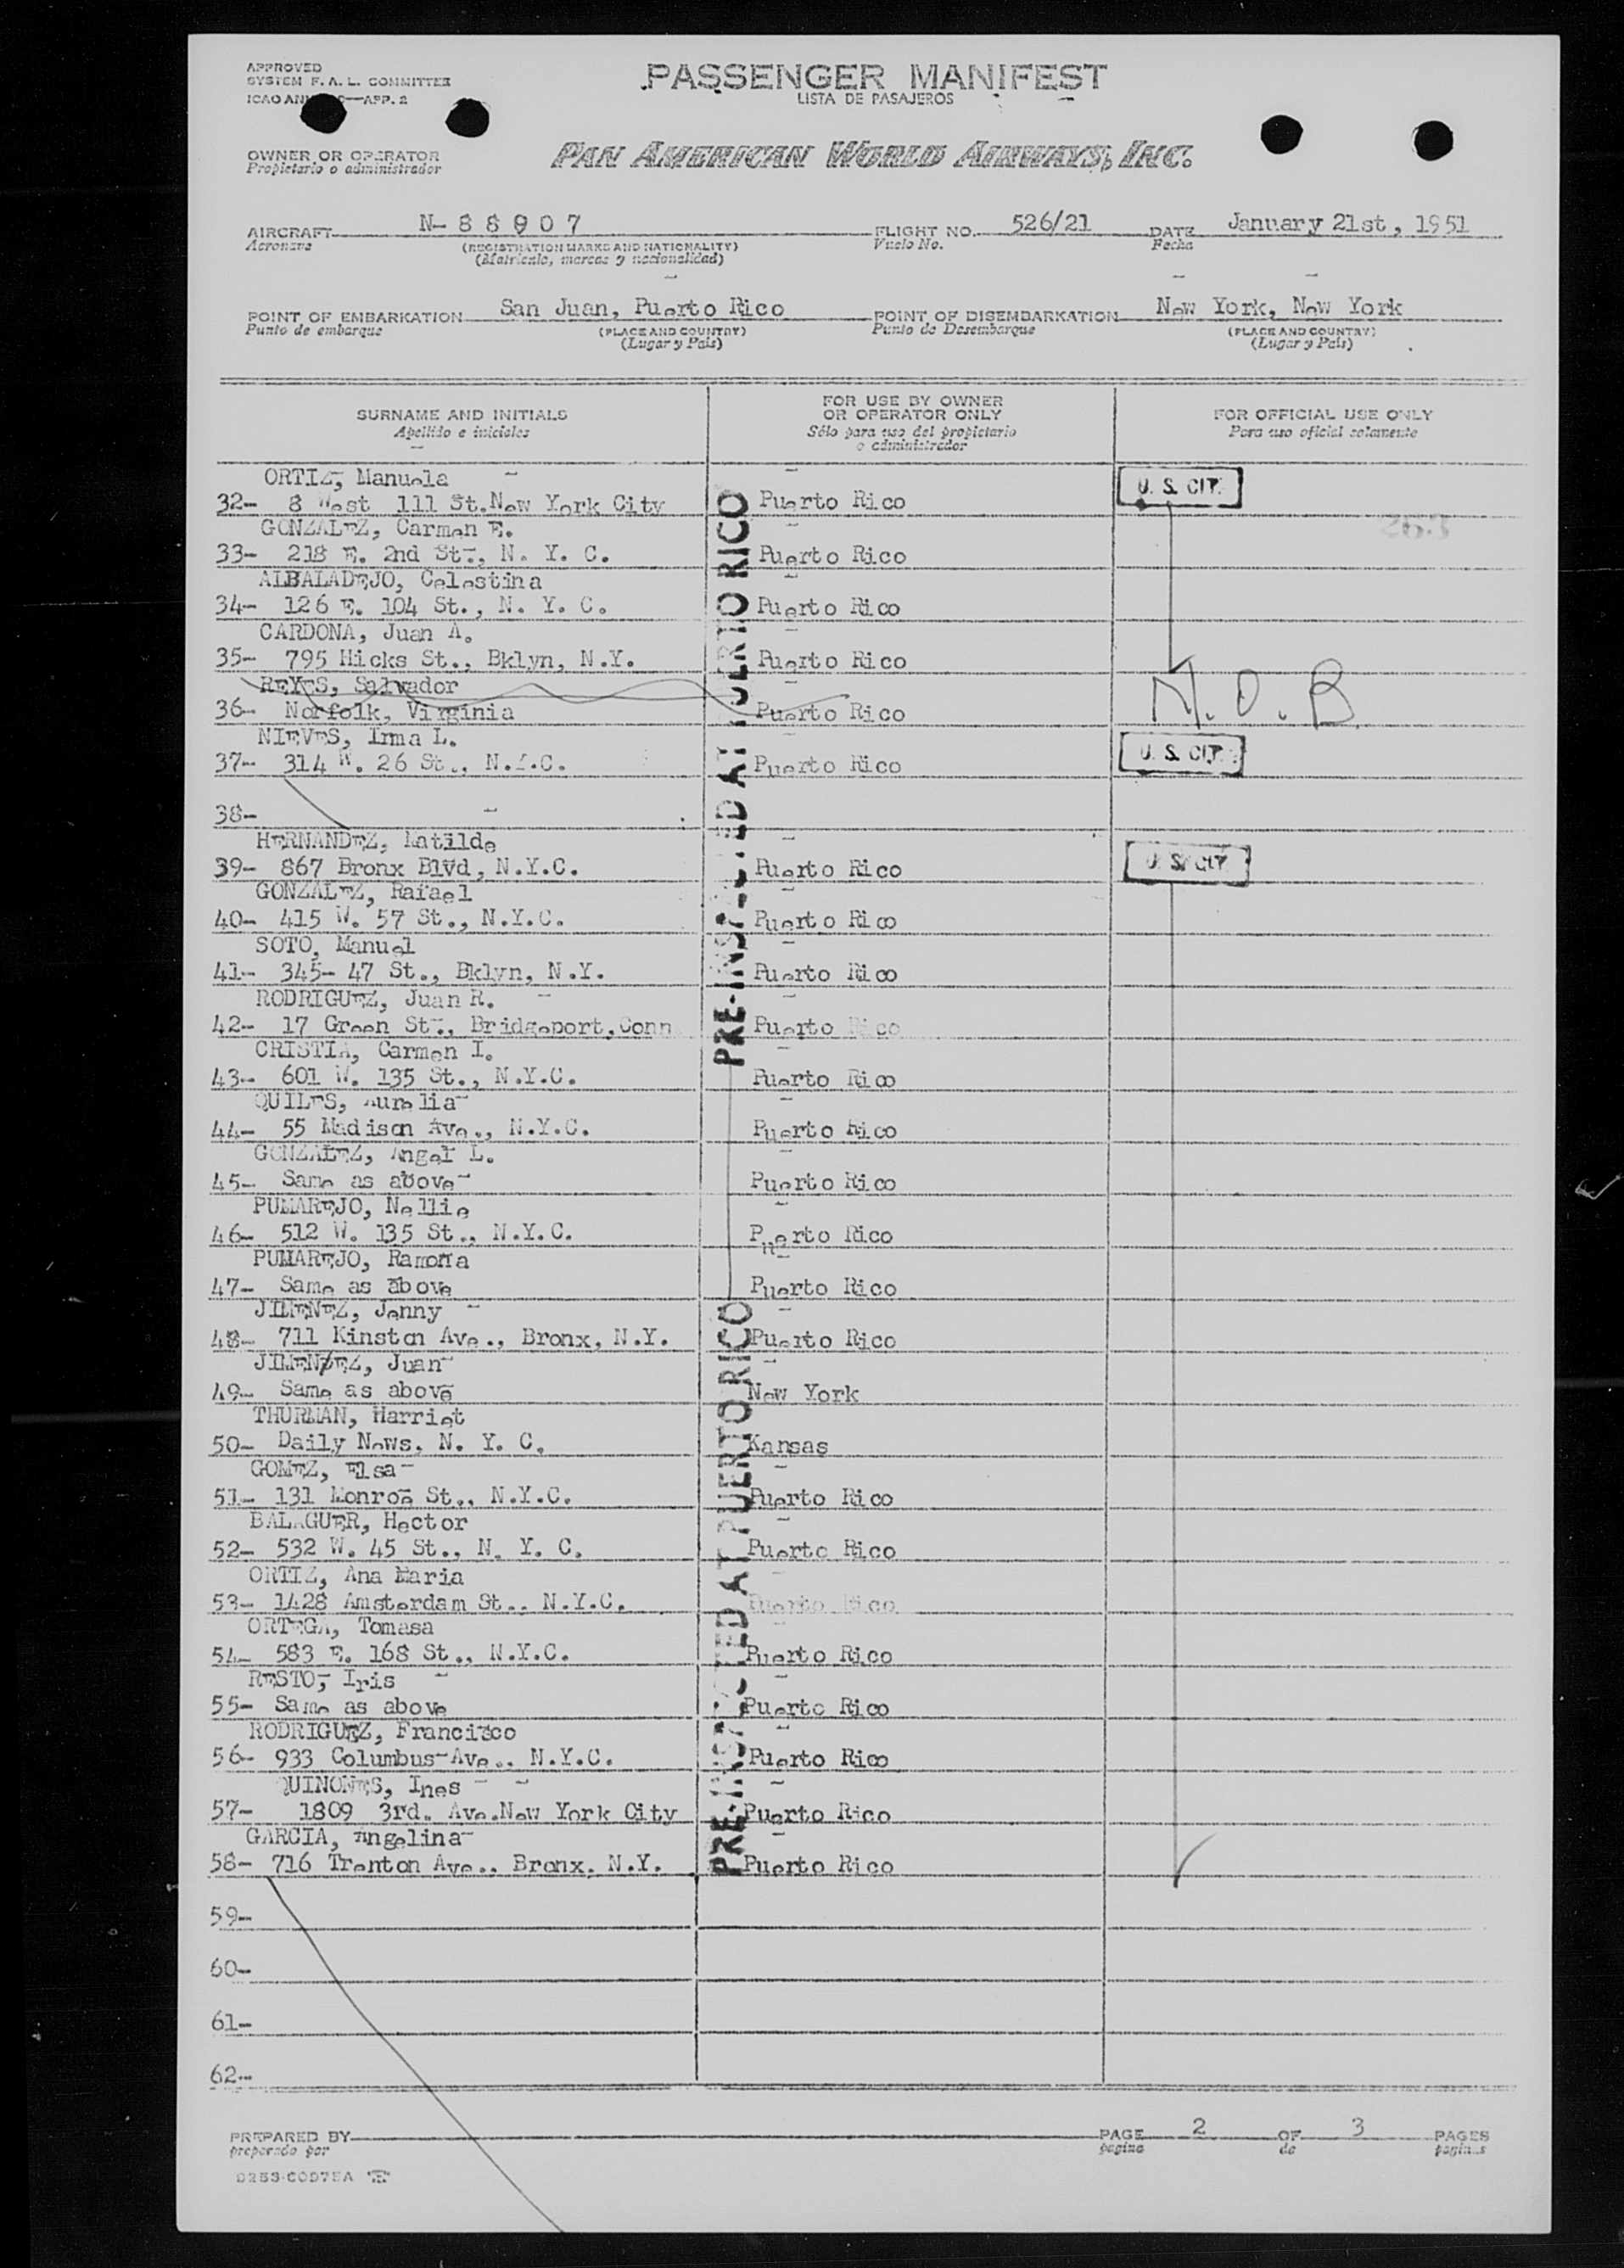 APPROVED
SYSTEM F. A. L. COMMITTEE
ICAO ANN 9—APP. 2
PASSENGER MANIFEST
LISTA DE PASAJEROS
OWNER OR OPERATOR
Propietario o administrador
PAN AMERICAN WORLD AIRWAYS, INC.
AIRCRAFT N- 8 8 9 0 7 FLIGHT NO. 526/21 DATE January 21st, 1951
Aeronave (REGISTRATION MARKS AND NATIONALITY) Vuelo No. Fecha
(Matricula, marcas y nacionalidad)
POINT OF EMBARKATION San Juan, Puerto Rico POINT OF DISEMBARKATION New York, New York
Punto de embarque (PLACE AND COUNTRY) Punto de Desembarque (PLACE AND COUNTRY)
(Lugar y Pais) (Lugar y Pais)
SURNAME AND INITIALS
Apellido e iniciales
FOR USE BY OWNER
OR OPERATOR ONLY
Sólo para uso del propietario
o administrador
FOR OFFICIAL USE ONLY
Para uso oficial solamente
ORTIZ, Manuela U. S. CIT.
32- 8 West 111 St.New York City Puerto Rico
GONZALEZ, Carmen E. 263
33- 218 E. 2nd St., N. Y. C. Puerto Rico
ALBALADEJO, Celestina
34- 126 E. 104 St., N. Y. C. Puerto Rico
CARDONA, Juan A.
35- 795 Hicks St., Bklyn, N.Y. Puerto Rico
REYES, Salvador N. O. B
36- Norfolk, Virginia Puerto Rico
NIEVES, Irma L. U. S. CIT.
37- 314 W. 26 St., N.Y.C. Puerto Rico
38-
HERNANDEZ, Matilde U. S. CIT.
39- 867 Bronx Blvd, N.Y.C. Puerto Rico
GONZALEZ, Rafael
40- 415 W. 57 St., N.Y.C. Puerto Rico
SOTO, Manuel
41- 345- 47 St., Bklyn, N.Y. Puerto Rico
RODRIGUEZ, Juan R.
42- 17 Green St., Bridgeport,Conn Puerto Rico
CRISTIA, Carmen I.
43- 601 W. 135 St., N.Y.C. Puerto Rico
QUILES, Aurelia
44- 55 Madison Ave., N.Y.C. Puerto Rico
GONZALEZ, Angel L.
45- Same as above Puerto Rico
PUMAREJO, Nellie
46- 512 W. 135 St., N.Y.C. Puerto Rico
PUMAREJO, Ramona
47- Same as above Puerto Rico
JIMENEZ, Jenny
48- 711 Kinston Ave., Bronx, N.Y. Puerto Rico
JIMENEZ, Juan
49- Same as above New York
THURMAN, Harriet
50- Daily News, N. Y. C. Kansas
GOMEZ, Elsa
51- 131 Monroe St., N.Y.C. Puerto Rico
BALAGUER, Hector
52- 532 W. 45 St., N. Y. C. Puerto Rico
ORTIZ, Ana Maria
53- 1428 Amsterdam St., N.Y.C. Puerto Rico
ORTEGA, Tomasa
54- 583 E. 168 St., N.Y.C. Puerto Rico
RESTO, Iris
55- Same as above Puerto Rico
RODRIGUEZ, Francisco
56- 933 Columbus Ave., N.Y.C. Puerto Rico
QUINONES, Ines
57- 1809 3rd. Ave.New York City Puerto Rico
GARCIA, Angelina
58- 716 Trenton Ave., Bronx, N.Y. Puerto Rico
59-
60-
61-
62-
PRE-INSPECTED AT PUERTO RICO
PRE-INSPECTED AT PUERTO RICO
PREPARED BY PAGE 2 OF 3 PAGES
preparado por pagina de paginas